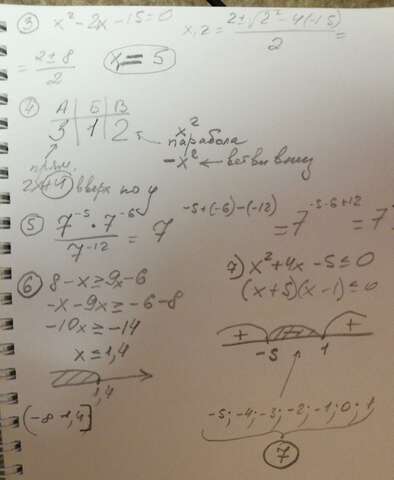 ③ x²-2x-15=0 x₁,₂= 2±√2²-4(-15) / 2 =
= 2±8 / 2 x₁=5
④ А | Б | В
3 | 1 | 2
x²
парабола
-x² ← ветви вниз
прям.
2x+4 вверх по y
⑤ 7⁻⁵ · 7⁻⁶ / 7⁻¹² = 7^(-5+(-6)-(-12)) = 7^(-5-6+12) = 7
⑥ 8-x≥9x-6
-x-9x≥-6-8
-10x≥-14
x≤1,4
1,4
(-8 1,4]
7) x²+4x-5≤0
(x+5)(x-1)≤0
+ +
-5 1
-5; -4; -3; -2; -1; 0; 1
⑦